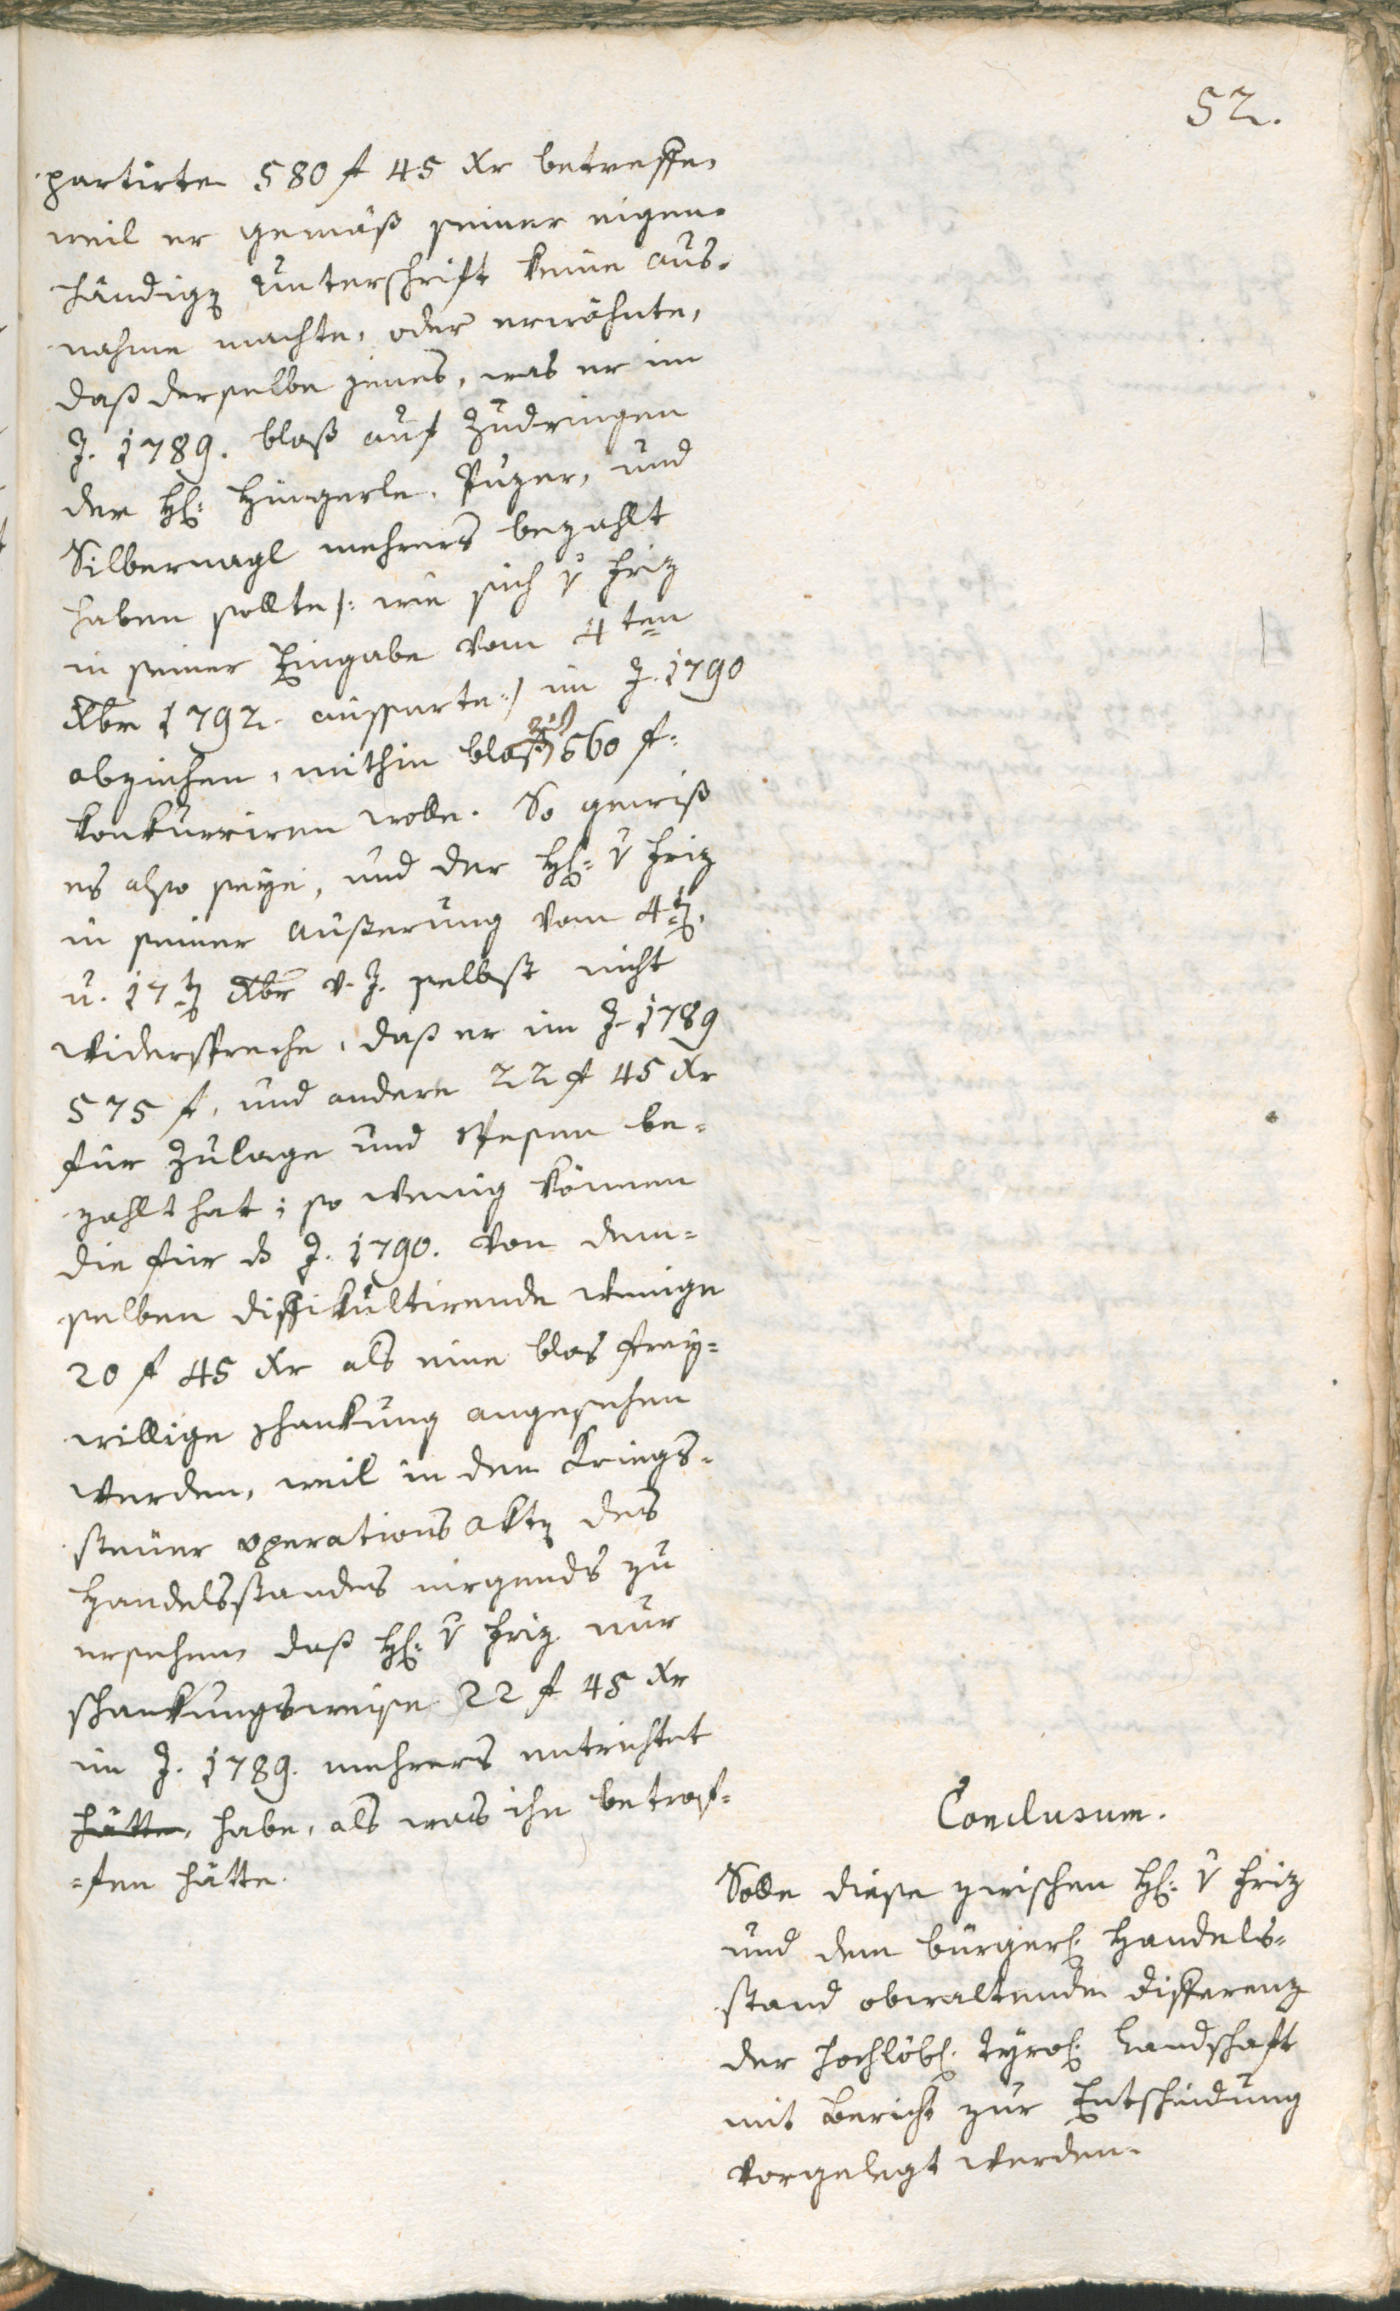 52.
partirte 580 f 45 Xr betreffe,
weil er gemäß seiner eigen-
händigen Unterschrift keine Aus-
nahme machte, oder erwähnte,
daß derselbe jenes, was er im
J. 1789. bloß auf Zudringen
der H: Hingerle, Puzer, und
Silbernagl mehrers bezahlt
haben sollte /: wie sich v Friz
in seiner Eingabe vom 4ten
Xbr 1792. äusserte :/ im J. 1790
abziehen, mithin bloß zu 560 f:
konkurriren wolle. So gewiß
es also seye, und der H: v Friz
in seiner Äußerung vom 4ten,
u. 17ten Xbr v. J. selbst nicht
widerspreche, daß er im J. 1789
575 f, und andere 22 f 45 Xr
für Zulage und Spesen be=
zahlt hat; so wenig können
die für d J. 1790. von dem=
selben diffikultirende wenige
20 f 45 Xr als eine blos frey=
willige Schankung angesehen
werden, weil in den Kriegs=
steuer operations akten des
Handelsstandes nirgends zu
ersehen, daß H: v Friz nur
schankungsweise 22 f 45 Xr
im J. 1789. mehrers entrichtet
hätte, habe, als was ihn betrof=
=fen hätte.
Conclusum.
Solle diese zwischen H: v Friz
und dem bürgerl. Handels=
stand obwaltende Differenz
der hochlöbl. Tyrol. Landschaft
mit Bericht zur Entscheidung
vorgelegt werden.